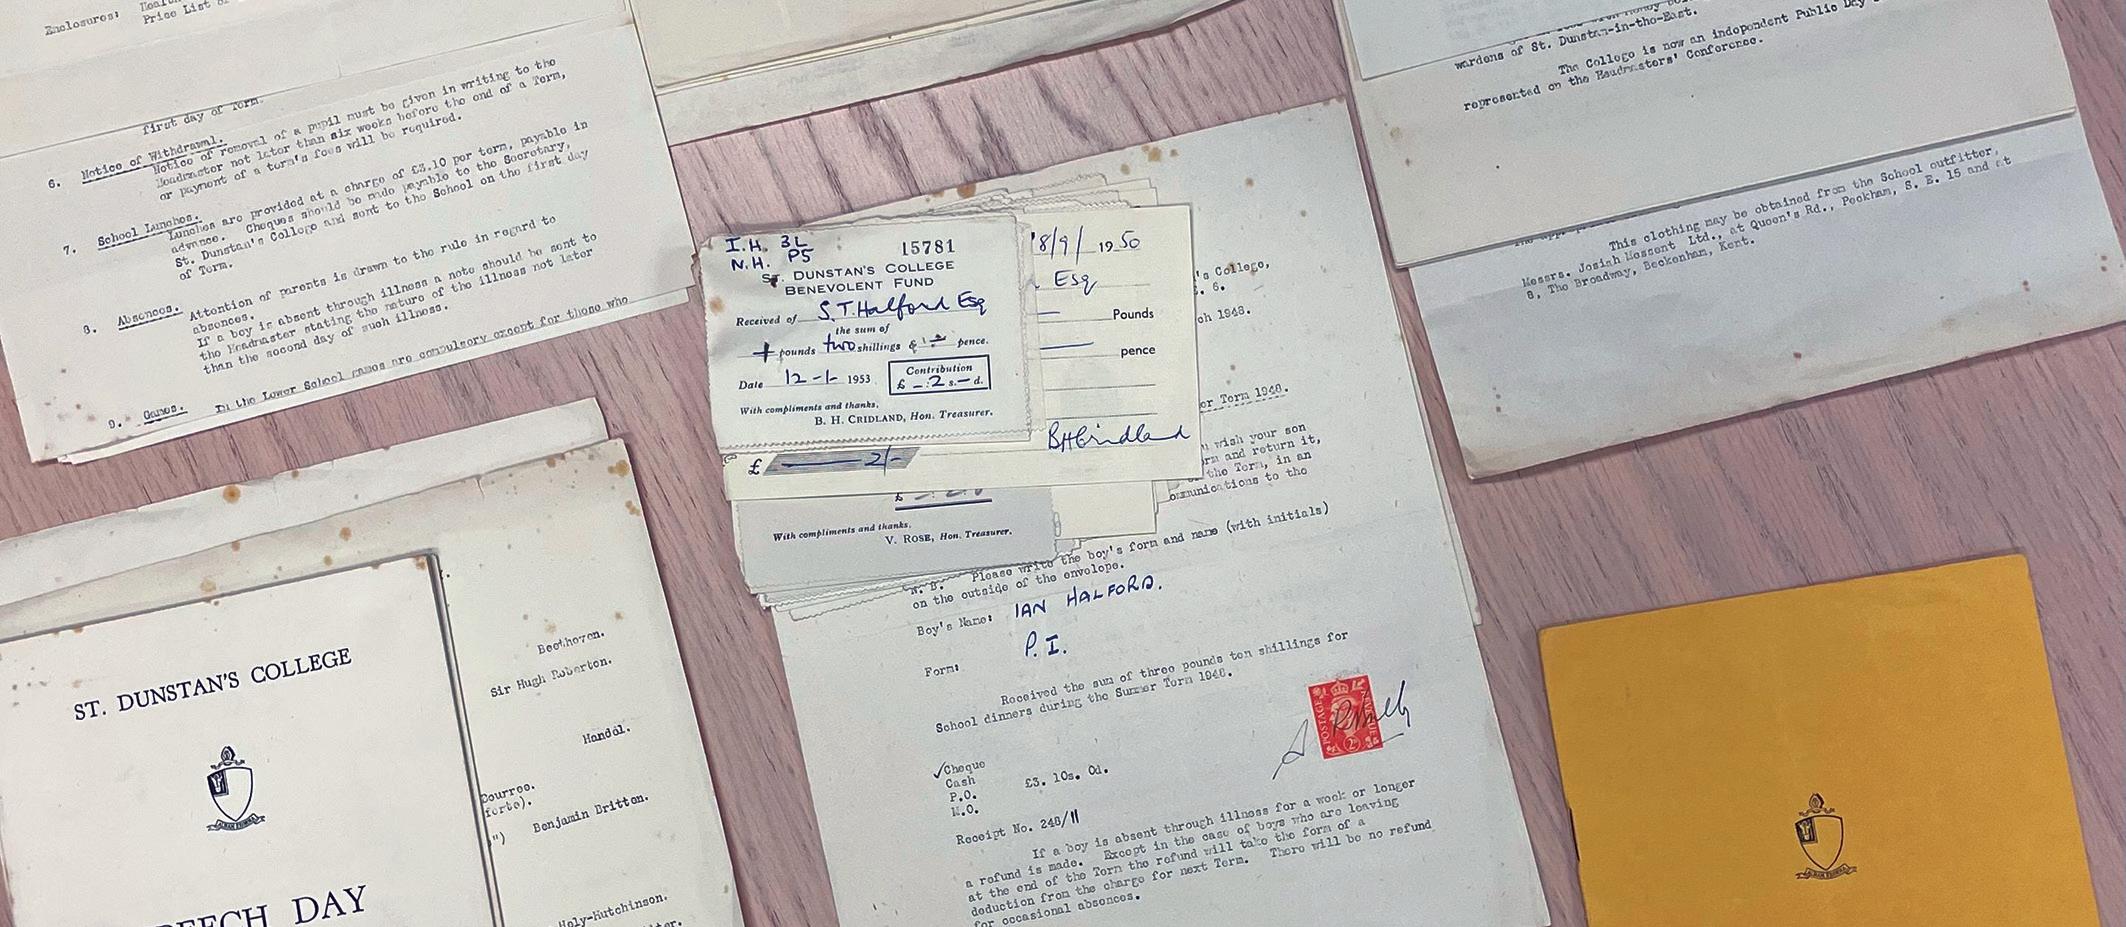 Enclosures:
Price List
first day of Term.
6. Notice of Withdrawal.
Notice of removal of a pupil must be given in writing to the
Headmaster not later than six weeks before the end of a Term,
or payment of a term's fees will be required.
7. School Lunches.
Lunches are provided at a charge of £3.10 per term, payable in
advance. Cheques should be made payable to the Secretary,
St. Dunstan's College and sent to the School on the first day
of Term.
8. Absences. Attention of parents is drawn to the rule in regard to
absences.
If a boy is absent through illness a note should be sent to
the Headmaster stating the nature of the illness not later
than the second day of such illness.
9. Games. In the Lower School games are compulsory except for those who
ST. DUNSTAN'S COLLEGE
EECH DAY
Beethoven.
Sir Hugh Roberton.
Handel.
Bourree.
forte).
") Benjamin Britten.
Hely-Hutchinson.
I.H. 3L
N.H. P5
15781
ST. DUNSTAN'S COLLEGE
BENEVOLENT FUND
Received of S.T. Halford Esq
the sum of
pounds two shillings & pence.
Date 12-1- 1953
Contribution
£ -: 2 s. - d.
With compliments and thanks,
B. H. CRIDLAND, Hon. Treasurer.
18/9/ 1950
Esq
Pounds
pence
BHCridland
£ 2/-
£
With compliments and thanks,
V. ROSE, Hon. Treasurer.
's College,
. 6.
ch 1948.
er Term 1948.
u wish your son
rm and return it,
the Term, in an
ommunications to the
N. B. Please write the boy's form and name (with initials)
on the outside of the envelope.
Boy's Name: IAN HALFORD.
Form: P. I.
Received the sum of three pounds ten shillings for
School dinners during the Summer Term 1948.
✓Cheque
Cash
P.O.
M.O.
£3. 10s. 0d.
POSTAGE
REVENUE
2D
Receipt No. 248/11
If a boy is absent through illness for a week or longer
a refund is made. Except in the case of boys who are leaving
at the end of the Term the refund will take the form of a
deduction from the charge for next Term. There will be no refund
for occasional absences.
wardens of St. Dunstan-in-the-East.
The College is now an independent Public Day
represented on the Headmasters' Conference.
This clothing may be obtained from the School outfitter,
Messrs. Josiah Messent Ltd., at Queen's Rd., Peckham, S. E. 15 and at
8, The Broadway, Beckenham, Kent.